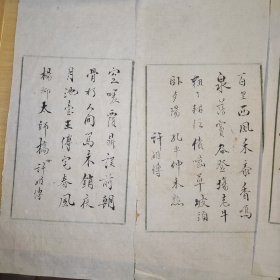 百里西風禾黍香鳴
泉落竇谷登場老牛
粗了耕耘債嚙草坡頭
卧夕陽 孔平仲禾熟
許
空嗟覆鼎誤前朝
骨朽人間罵未銷夜
月池臺王傅宅春風
楊柳太師橋 許